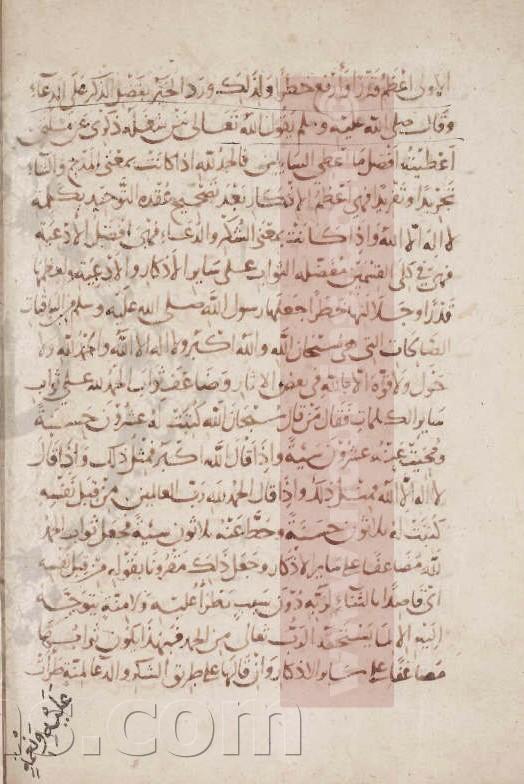 الاولى اعظم قدرا وأرفع خطرا ولذلك ورد الخبر بفضل الذكر على الدعاء
وقال صلى الله عليه وسلم يقول الله تعالى من شغله ذكرى عن مسئلتى
اعطيته افضل ما اعطى السايلين فالحمد لله اذا كانت بمعنى المدح والثناء
تحريدا وتفريدا فهى اعظم الاذكار بعد تصحيح عقده التوحيد بكلمه
لا اله الا الله واذا كانت بمعنى الشكر والدعاء فهى افضل الادعيه
فهى فى كلى القسمين مفضله الثواب على ساير الاذكار والادعيه ولعظمها
قدرا وجلالتها خطرا جعلها رسول الله صلى الله عليه وسلم من الباقيات
الصالحات التى هى سبحان الله والله اكبر ولا اله الا الله والحمد لله ولا
حول ولا قوة الا بالله فى بعض الاثار وضاعف ثواب الحمد لله على ثواب
ساير الكلمات فقال من قال سبحان الله كتبت له عشرون حسنة
ومحيت عنه عشرون سيئة واذا قال الله اكبر فمثل ذلك واذا قال
لا اله الا الله فمثل ذلك واذا قال الحمد لله رب العالمين من قبل نفسه
كتبت له بها ثلاثون حسنة وحط عنه ثلاثون سيئة فجعل ثواب الحمد
لله مضاعفا على ساير الاذكار وجعل ذلك مقرونا بقوله من قبل نفسه
اى قاصدا بالثناء لربه دون سبب يطرأ عليه ولا منة بتوجه
اليه الا لما يستحقه الرب تعالى من الحمد فبهذا يكون ثوابها
مضاعفا على ساير الاذكار وان قالها على طريق الشكر والدعا لمنة طرأت
عليه ونعمة